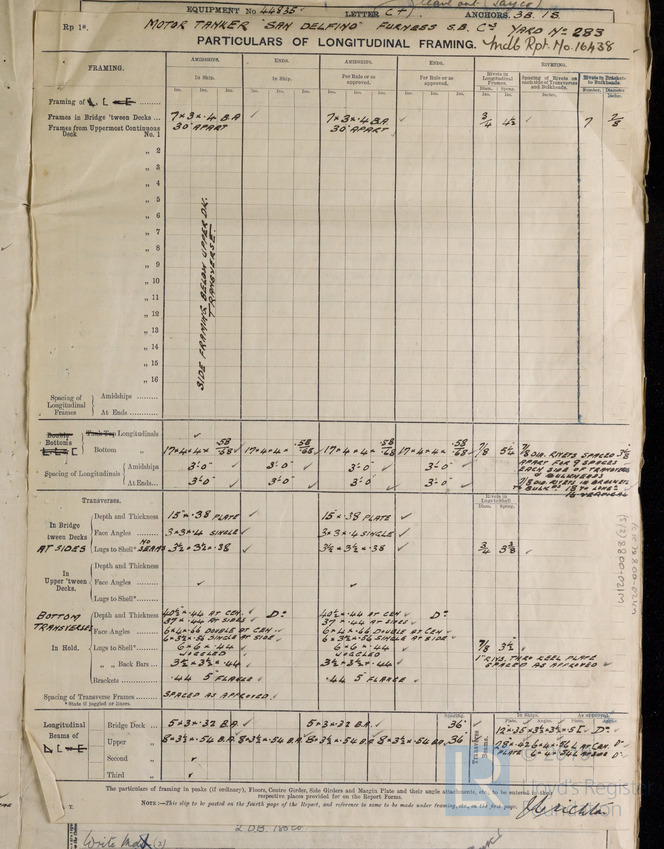 EQUIPMENT No 44835. LETTER C† ANCHORS. 3B. 1S.
Rp 1*. MOTOR TANKER 'SAN DELFINO' FURNESS S.B. Co YARD No 283
PARTICULARS OF LONGITUDINAL FRAMING. Mdb Rpt. No. 16438
FRAMING. AMIDSHIPS. ENDS. AMIDSHIPS. ENDS. RIVETING.
In Ship. In Ship. Per Rule or as approved. Per Rule or as approved. Rivets in Longitudinal Frames. Spacing of Rivets on each side of Transverses and Bulkheads. Rivets in Brackets to Bulkheads.
Ins. Ins. Ins. Ins. Ins. Ins. Ins. Ins. Ins. Ins. Ins. Ins. Diam. Ins. Spcng. Ins. Inches. Number. Diameter Inches.
Framing of
Frames in Bridge 'tween Decks ... 7 × 3 × .4 B.A ✓ 7 × 3 × .4 B.A ✓ 3/4 4½ 7 7/8
Frames from Uppermost Continuous Deck No. 1 30" APART 30" APART
„ 2
„ 3
„ 4
„ 5
„ 6
„ 7
„ 8
„ 9
„ 10
„ 11
„ 12
„ 13
„ 14
„ 15
„ 16
SIDE FRAMING BELOW UPPER DK.
TRANSVERSE.
Spacing of Longitudinal Frames Amidships
At Ends
Double Bottoms Tank Top Longitudinals ✓
Bottom „ 17 × 4 × 4 × .58/.68 ✓ 17 × 4 × 4 × .58/.68 ✓ 17 × 4 × 4 × .58/.68 17 × 4 × 4 × .58/.68 ✓ 7/8 5¼
7/8 DIA. RIVETS SPACED 3⅛
APART FOR 9 SPACES
EACH SIDE OF TRANSVERSES
& BULKHEADS
7/8 DIA. RIVETS IN BRACKETS
TO BULKDS 18 TO LONGL
16 VERTICAL
Spacing of Longitudinals Amidships 3'-0" ✓ 3'-0" ✓ 3'-0" ✓ 3'-0" ✓
At Ends... 3'-0" ✓ 3'-0" ✓ 3'-0" ✓ 3'-0" ✓
Transverses. Rivets in Lugs to Shell Diam. Ins. Spcng. Ins.
In Bridge 'tween Decks AT SIDES
Depth and Thickness 15" × .38 PLATE ✓ 15" × .38 PLATE ✓
Face Angles 3 × 3 × .4 SINGLE ✓ 3 × 3 × .4 SINGLE ✓
Lugs to Shell* NO SEAMS 3½ × 3½ × .38 3½ × 3½ × .38 ✓ 3/4 3⅜ ✓
In Upper 'tween Decks.
Depth and Thickness
Face Angles ✓ ✓
Lugs to Shell*
BOTTOM TRANSVERSES In Hold.
Depth and Thickness 40½ × .44 AT CEN. ✓ Do 40½ × .44 AT CEN ✓ Do
37 × .44 AT SIDES ✓ 37 × .44 AT SIDES ✓
Face Angles 6 × 4 × .66 DOUBLE AT CEN ✓ 6 × 4 × .66 DOUBLE AT CEN ✓
6 × 3½ × .56 SINGLE AT SIDE ✓ 6 × 3½ × .56 SINGLE AT SIDE ✓
Lugs to Shell* 6 × 6 × .44 JOGGLED 6 × 6 × .44 JOGGLED 7/8 3½ ✓
„ „ Back Bars ... 3½ × 3½ × .44 3½ × 3½ × .44 ✓
1" RIVS. THRO KEEL PLATE
SPACED AS APPROVED ✓
Brackets .44 5" FLANGE ✓ .44 5" FLANGE ✓
Spacing of Transverse Frames SPACED AS APPROVED ✓
* State if joggled or liners.
Longitudinal Beams of
Spacing. Transverse Beams. In Ships. As approved.
Plate. Angles. Plate. Angles.
Bridge Deck ... 5 × 3 × .32 B.A. ✓ 5 × 3 × .32 B.A. ✓ 36" ✓ 12 × .35 × 3½ × 3½ × .56 ✓ Do
Upper „ 8 × 3½ × .54 B.A. 8 × 3½ × .54 B.A. 8 × 3½ × .54 B.A. 8 × 3½ × .54 B.A. 36"
Second „ ✓
Third „ ✓
The particulars of framing in peaks (if ordinary), Floors, Centre Girder, Side Girders and Margin Plate and their angle attachments, etc., to be entered in their
respective places provided for on the Report Forms.
NOTE:—This slip to be pasted on the fourth page of the Report, and reference to same to be made under framing, etc., on the first page.
Lloyd's Register
Foundation